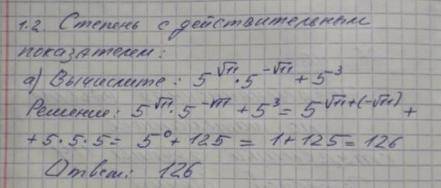 1.2. Степень с действительным
показателем:
а) Вычислите: 5^√11 · 5^-√11 + 5^3
Решение: 5^√11 · 5^-√11 + 5^3 = 5^√11+(-√11) +
+ 5 · 5 · 5 = 5^0 + 125 = 1 + 125 = 126
Ответ: 126